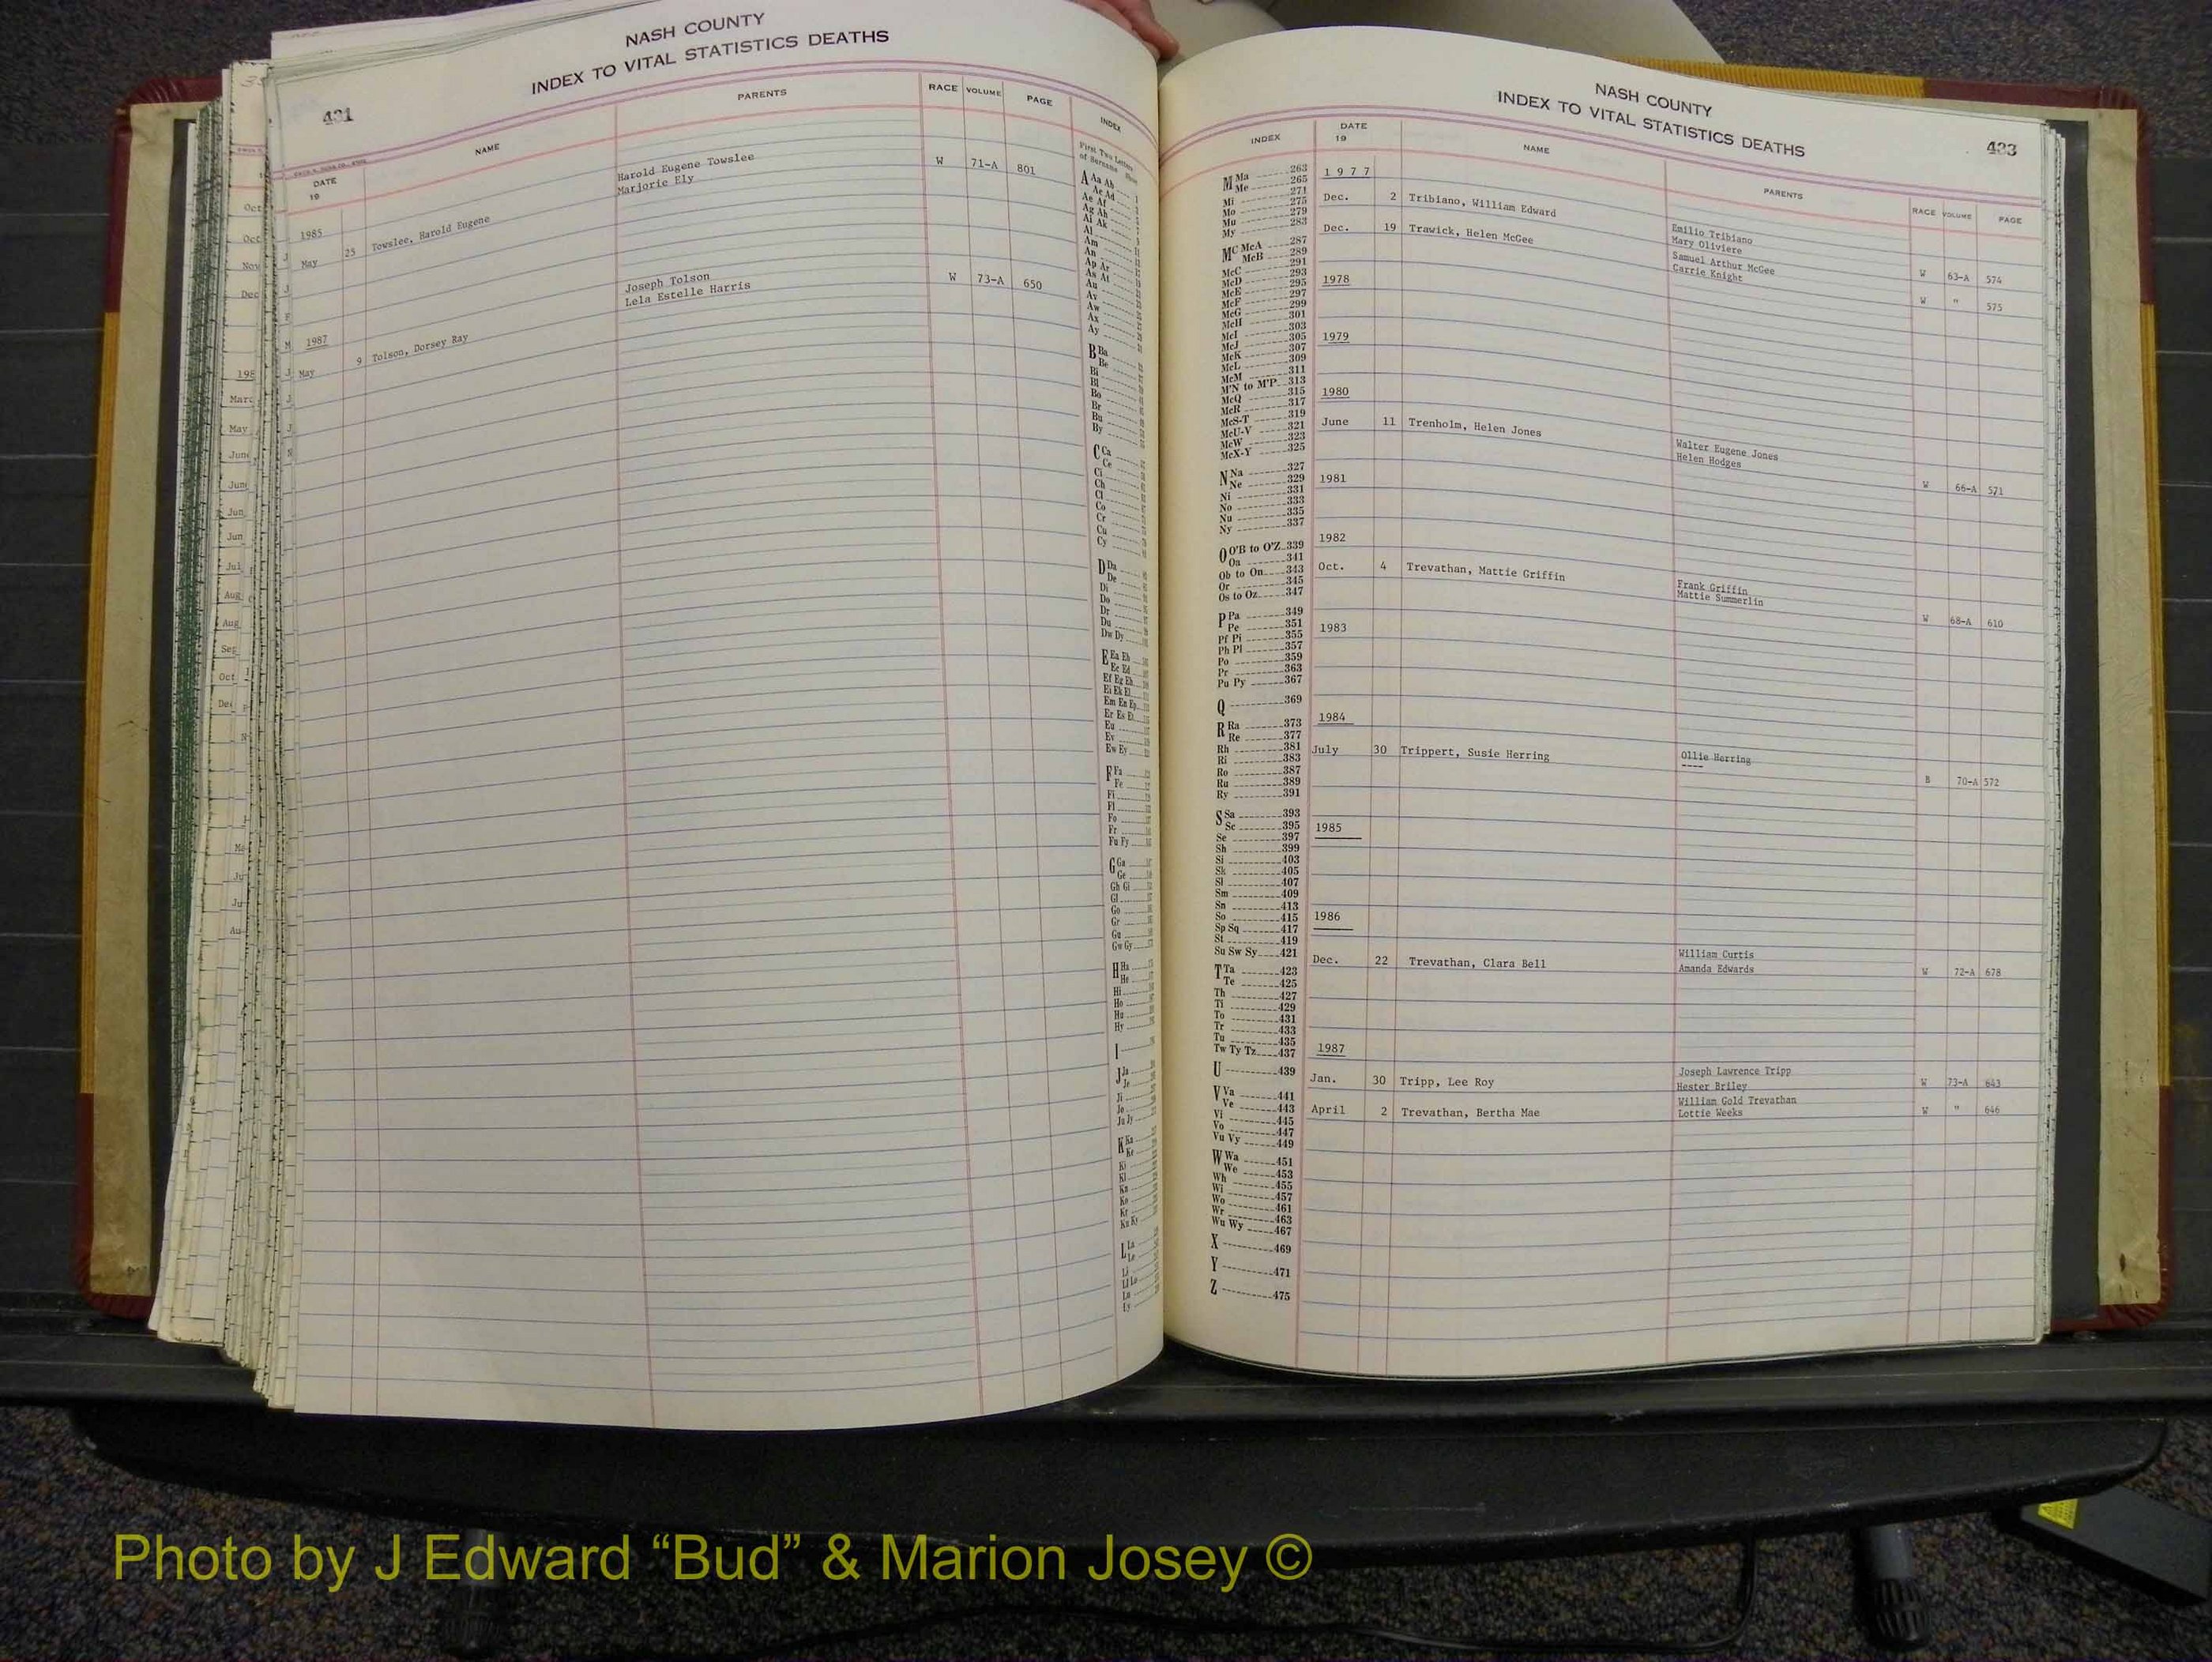 NASH COUNTY
INDEX TO VITAL STATISTICS DEATHS
431
DATE
19
NAME
PARENTS
RACE VOLUME PAGE
INDEX
First Two Letters
of Surname
1985
May 25 Towslee, Harold Eugene Harold Eugene Towslee W 71-A 801
Marjorie Ely
1987
May 9 Tolson, Dorsey Ray Joseph Tolson W 73-A 650
Lela Estelle Harris
A Aa Ab
Ac Ad
Ae Af
Ag Ah
Al
Am
An
Ap Ar
As At
Au
Av
Aw
Ax
Ay
B Ba
Be
Bi
Bl
Bo
Br
Bu
By
C Ca
Ce
Ci
Ch
Cl
Co
Cr
Cu
Cy
D Da
De
Di
Do
Dr
Du
Dw Dy
E Ea Eb
Ec Ed
Ef Eg Eh
Ei Ek El
Em En Ep
Er Es Et
Eu
Ev
Ew Ey
F Fa
Fe
Fi
Fl
Fo
Fr
Fu Fy
G Ga
Ge
Gh Gi
Gl
Go
Gr
Gu
Gw Gy
H Ha
He
Hi
Ho
Hu
Hy
I
J Ja
Je
Ji
Jo
Ju Jy
K Ka
Ke
Ki
Kl
Kn
Ko
Kr
Ku Ky
L La
Le
Li
Ll Lo
Lu
Ly
NASH COUNTY
INDEX TO VITAL STATISTICS DEATHS
433
INDEX
DATE
19
NAME
PARENTS
RACE VOLUME PAGE
M Ma 263
Me 265
Mi 271
Mo 275
Mu 279
My 283
MC McA 287
McB 289
McC 291
McD 293
McE 295
McF 297
McG 299
McH 301
McI 303
McJ 305
McK 307
McL 309
McM 311
M'N to M'P 313
McQ 315
McR 317
McS-T 319
McU-V 321
McW 323
McX-Y 325
N Na 327
Ne 329
Ni 331
No 333
Nu 335
Ny 337
O O'B to O'Z 339
Oa 341
Ob to On 343
Or 345
Os to Oz 347
P Pa 349
Pe 351
Pf Pi 355
Ph Pl 357
Po 359
Pr 363
Pu Py 367
Q 369
R Ra 373
Re 377
Rh 381
Ri 383
Ro 387
Ru 389
Ry 391
S Sa 393
Sc 395
Se 397
Sh 399
Si 403
Sk 405
Sl 407
Sm 409
Sn 413
So 415
Sp Sq 417
St 419
Su Sw Sy 421
T Ta 423
Te 425
Th 427
Ti 429
To 431
Tr 433
Tu 435
Tw Ty Tz 437
U 439
V Va 441
Ve 443
Vi 445
Vo 447
Vu Vy 449
W Wa 451
We 453
Wh 455
Wi 457
Wo 461
Wr 463
Wu Wy 467
X 469
Y 471
Z 475
1977
Dec. 2 Tribiano, William Edward Emilio Tribiano W 63-A 574
Mary Oliviere
Dec. 19 Trawick, Helen McGee Samuel Arthur McGee W " 575
Carrie Knight
1978
1979
1980
June 11 Trenholm, Helen Jones Walter Eugene Jones W 66-A 571
Helen Hodges
1981
1982
Oct. 4 Trevathan, Mattie Griffin Frank Griffin W 68-A 610
Mattie Summerlin
1983
1984
July 30 Trippert, Susie Herring Ollie Herring B 70-A 572
----
1985
1986
Dec. 22 Trevathan, Clara Bell William Curtis W 72-A 678
Amanda Edwards
1987
Jan. 30 Tripp, Lee Roy Joseph Lawrence Tripp W 73-A 643
Hester Briley
April 2 Trevathan, Bertha Mae William Gold Trevathan W " 646
Lottie Weeks
Photo by J Edward “Bud” & Marion Josey ©